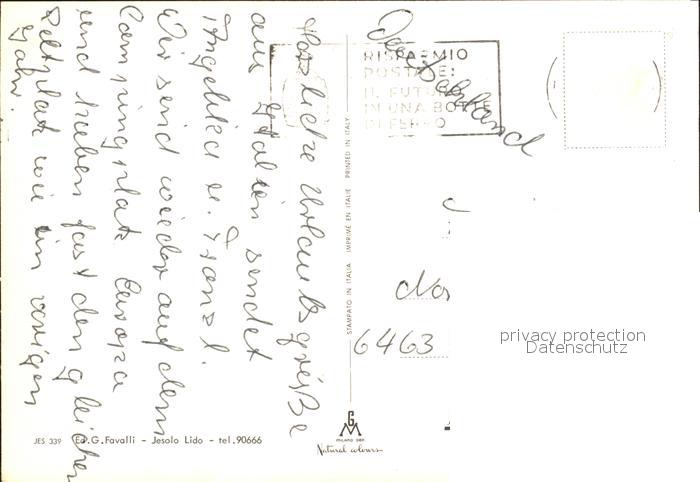 Herzliche Urlaubsgrüße
aus Italien sendet
Angelika u. Franzl.
Wir sind wieder auf dem
Campingplatz Europa
und haben fast den gleichen
Zeltplatz wie im vorigen
Jahr.
JES 339 Ed. G. Favalli - Jesolo Lido - tel. 90666
STAMPATO IN ITALIA IMPRIMÉ EN ITALIE PRINTED IN ITALY
RISPARMIO
POSTALE:
IL FUTURO
IN UNA BOTTE
DI FERRO
Deutschland
6463
privacy protection
Datenschutz
GM
MILANO DEP.
Natural colours